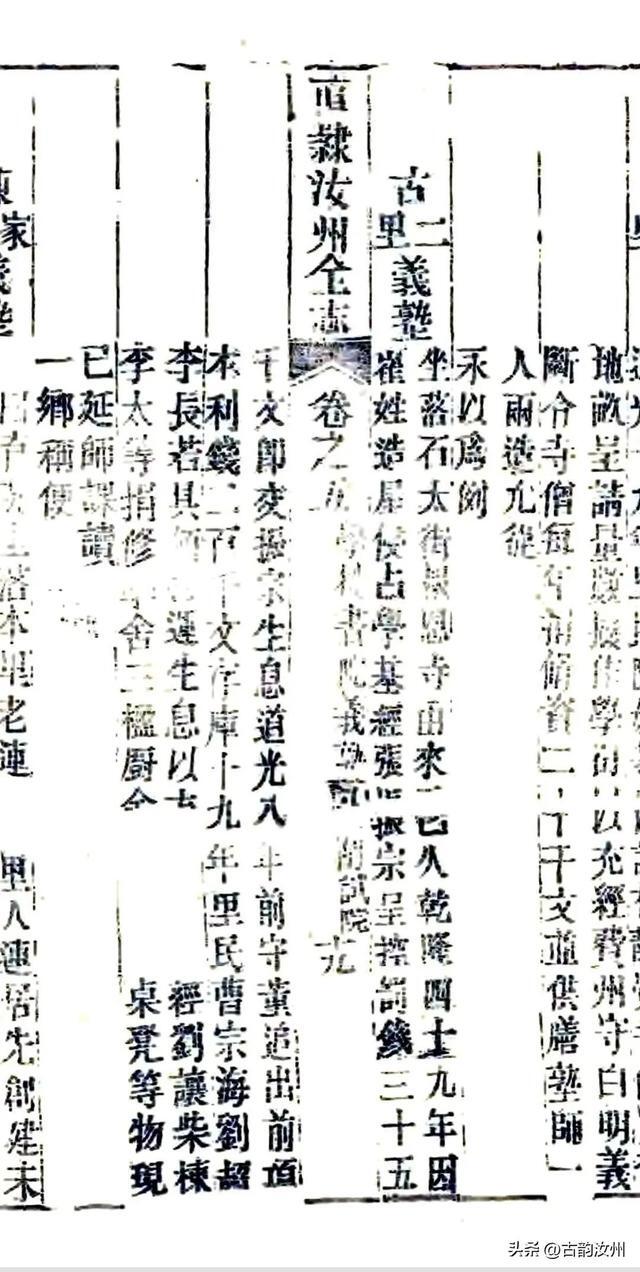 地畝呈請量撥 作學 以充經費州守白明義
斷令寺僧每年 脩資二十千文並供膳塾師一
人兩造允從
永以為例
古二里義塾
坐落石太街報恩寺由來已久乾隆四十九年因
崔姓造屋侵占學基經張振宗呈控罰錢三十五
直隸汝州全志 卷之五 學校書院義塾 試院 九
千文即交振宗生息道光八年前守董追出前項
本利錢二百千文存庫十九年里民曹宗海劉超
李長若具領 運生息以 經劉讓柴棟
李太等捐修 舍三楹廚舍 桌凳等物現
已延師課讀
一鄉稱便
家義塾
坐落本里老連 里人連居先創建未
头条 @古韵汝州